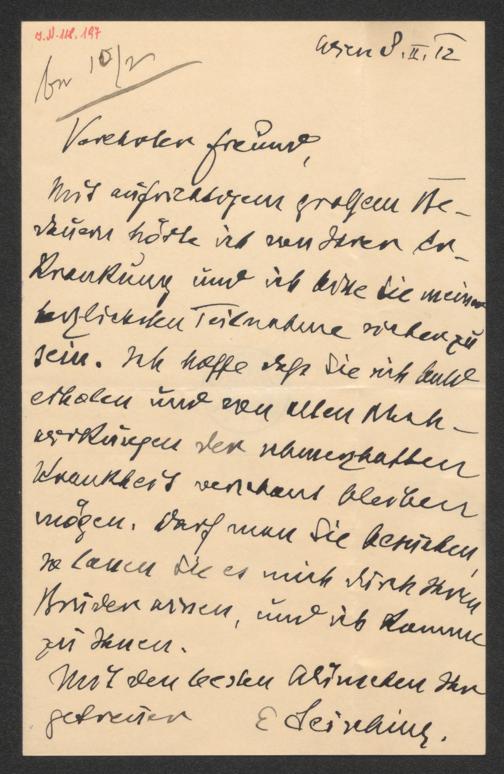 J.N. 118.197
bw 10/2
Wien 8.II.12
Verehrter Freund,
Mit aufrichtigem großem Be-
dauern hörte ich von Ihrer Er-
krankung und ich bitte Sie meiner
herzlichsten Teilnahme sicher zu
sein. Ich hoffe daß Sie sich bald
erholen und von allen Nach-
wirkungen der schmerzhaften
Krankheit verschont bleiben
mögen. Darf man Sie besuchen,
so lassen Sie es mich durch Ihren
Bruder wissen, und ich komme
zu Ihnen.
Mit den besten Wünschen Ihr
getreuer E